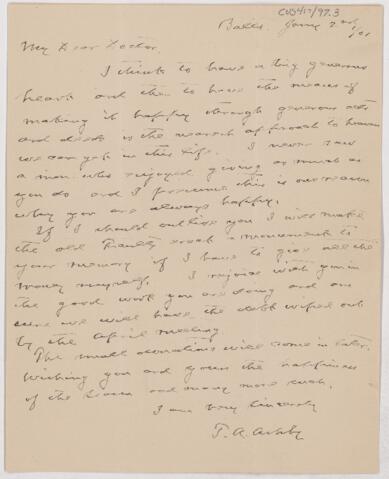 CUS417/97.3
Balto. Jany 2nd /01
My Dear Doctor,
I think to have a big generous
heart and then to have the means of
making it happy through generous acts
and deeds is the nearest approach to heaven
we can get in this life. I never saw
a man who enjoyed giving as much as
you do and I presume this is one reason
why you are always happy.
If I should outlive you I will make
the old Faculty erect a monument to
your memory if I have to give all the
money myself. I rejoice with you in
the good work you are doing and am
sure we will have the debt wiped out
by the April meeting.
The small donations will come in later.
Wishing you and yours the happiness
of the season and many more such.
I am very sincerely
T. A. Ashby